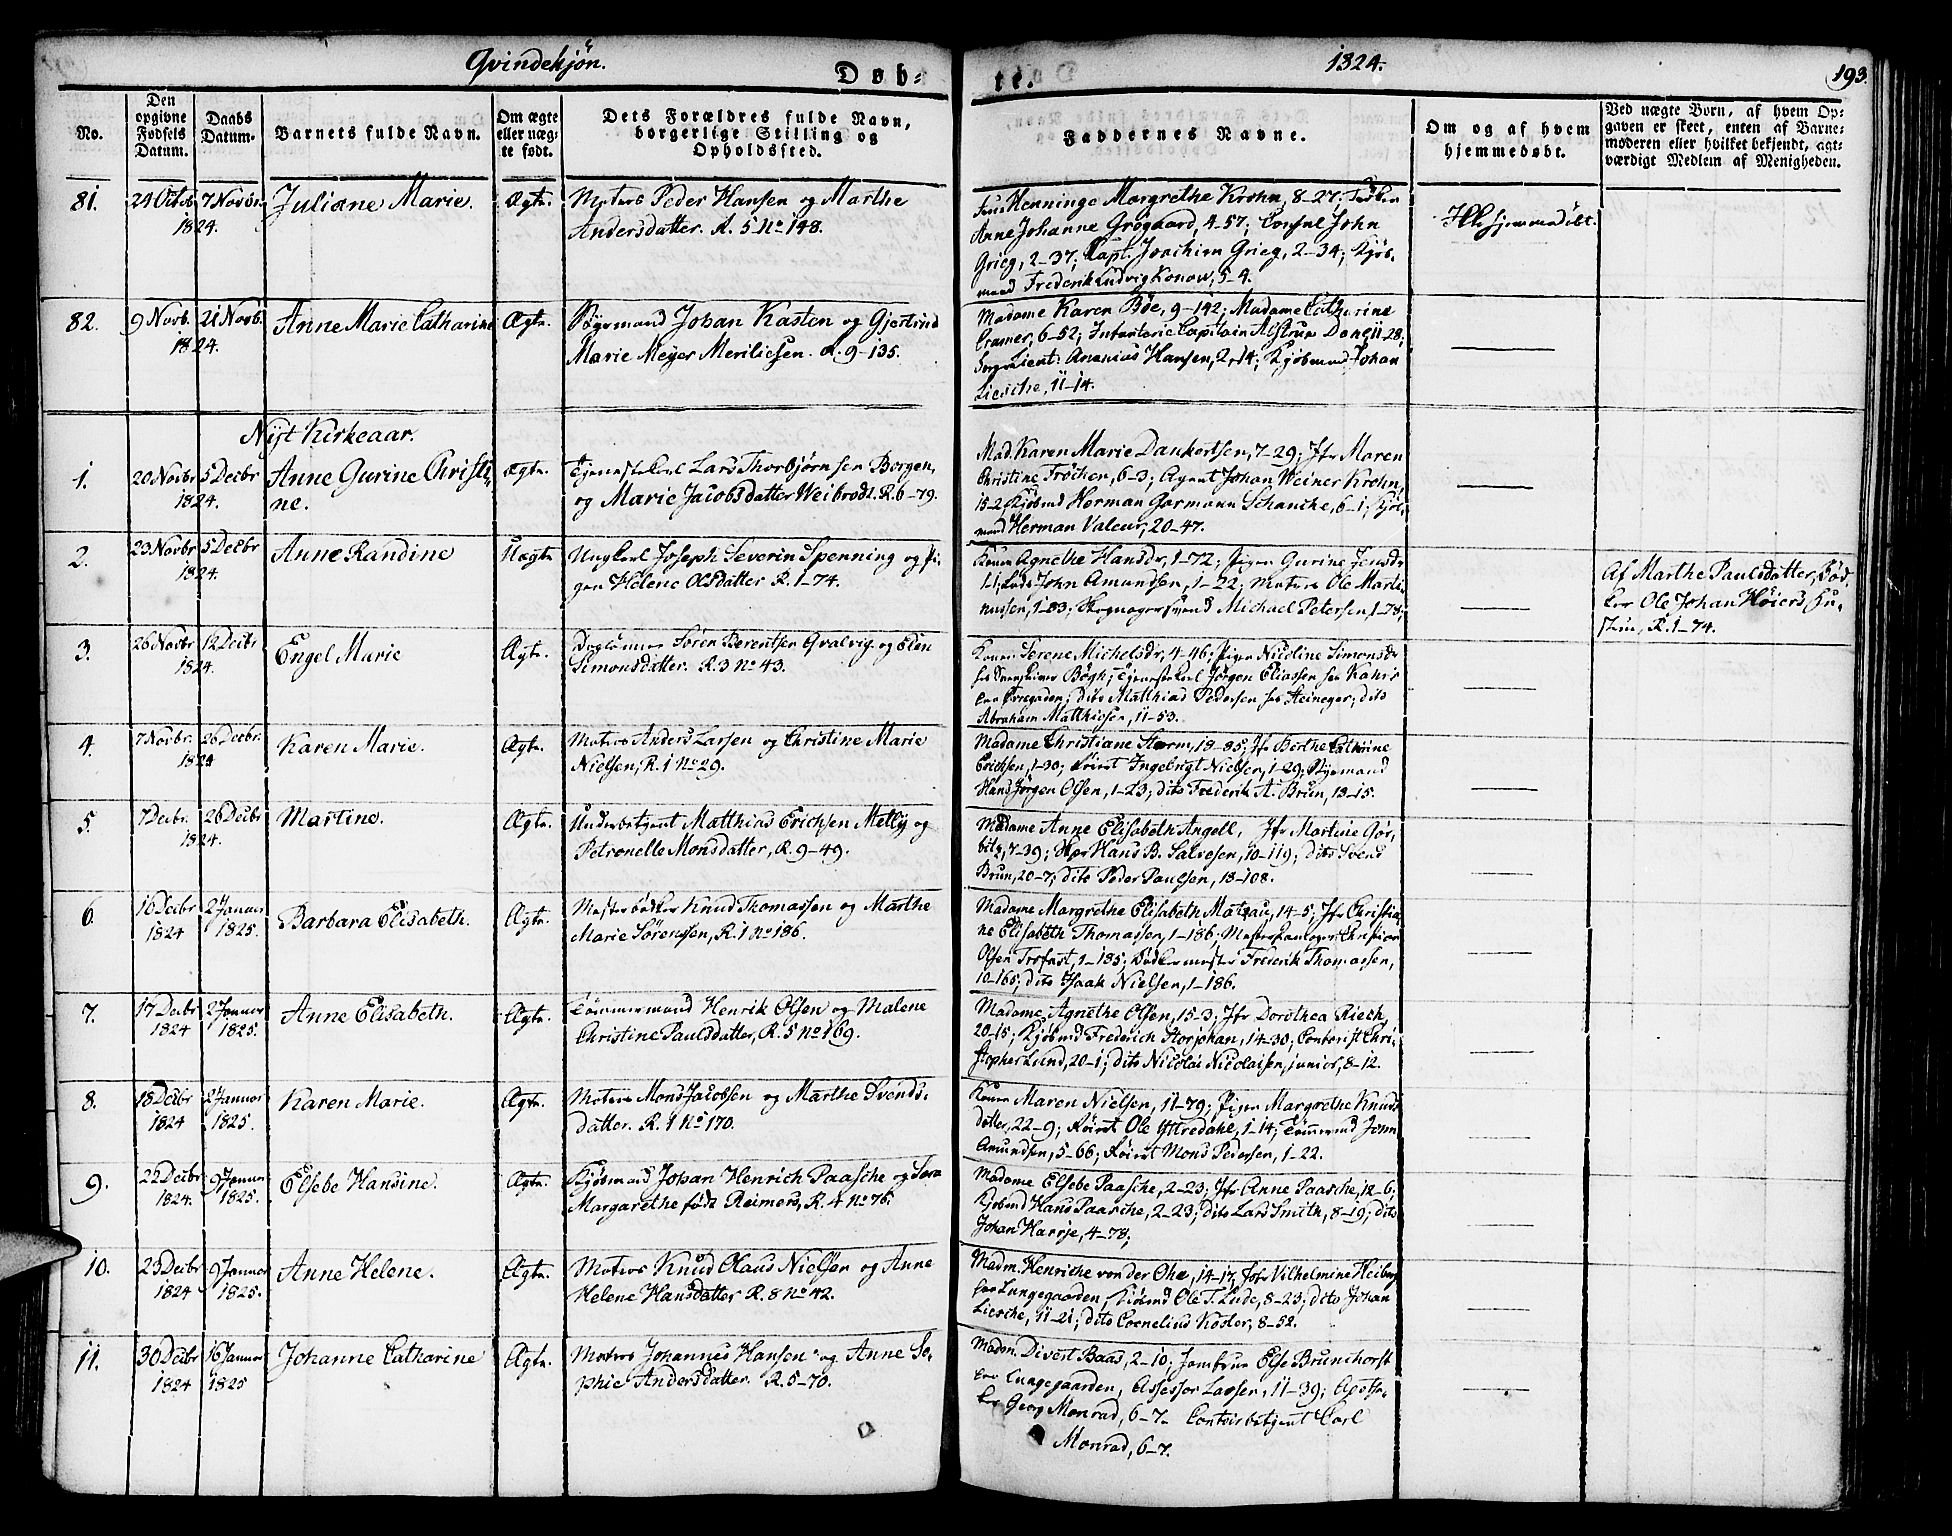 Qvindekjön.
Døb-
te.
1824.
193.
No.
Den opgivne Fødsels Datum.
Daabs Datum.
Barnets fulde Navn.
Om ægte eller næg- te født.
Dets Forældres fulde Navn, borgerlige Stilling og Opholdssted.
Faddernes Navne.
Om og af hvem hjemmedøbt.
Ved nægte Born, af hvem Op-
gaven er skeet, enten af Barne-
moderen eller hvilket bekjendt, agt-
værdigt Medlem af Menigheden.
81.
24 Octob 7 Novbr
1824.
Juliane Marie.
Ægte.
Matros Peder Hansen og Marthe
Andersdatter. R. 5 No 148.
Henninge Margrethe Krohn, 8-27;
Anne Johanne Grøgaard, 4-57; Consul John
Grieg, 2-37; Capt. Joachim Grieg, 2-34; Kjöb-
mand Frederik Ludvig Konow, 5-4.
Ikke hjemmedöbt.
82.
9 Novb. 21 Novb.
1824.
Anne Marie Catharine
Ægte.
Johan Kasten og Gjertrud
Marie Meyer R. 9-135.
Madame Karen Böe, 9-142; Madame Catharine
Cramer, 6-52; Infanterie Capitain
Ananias Hansen, Kjöbmand Johan
Liesche, 11-14.
Nyt Kirkeaar.
1.
20 Novbr 5 Decbr
1824.
Anne Gurine Christi-
ne.
Ægte.
Tjenestekarl Lars Thorbjørnsen Borgen,
og Marie Jacobsdatter Weibrodt. R. 6-79.
Mad. Karen Marie Dankertsen, 7-29; Jfr Maren
Christine Fröchen, 6-3; Agent Johan Weiner Krohn,
15-2 Kjöbmd Herman Garmann Schanche, 6-1; Kjöb-
mand Herman Valeur, 20-47.
2.
23 Novbr 5 Decbr
1824.
Anne Randine
Uægte
Ungkarl Joseph Severin Spenning og Pi-
gen Helene Olsdatter R. 1-74.
Konen Agnethe Hansdr, 1-72; Pigen Gurine Jensdr
John Amundsen, 1-22; Matros Ole Marti-
nussen, 1-83; Michael Petersen, 1-78;
Af Marthe Paulsdatter,
Ole Johan Høiers, Hu-
R. 1-74.
3.
26 Novbr 12 Decbr
1824.
Engel Marie
Ægte.
Dagløner Sören Berentsen Qvalvig og Elen
Simonsdatter. R. 3 No 43.
Konen Serene Michelsdr, 4-46; Pigen Nicoline Simonsdr
Bøgh; Tjenestekarl Jörgen Eliassen
dito Matthias Pedersen dito
Abraham Matthiesen, 11-53.
4.
7 Novbr. 26 Decbr.
1824
Karen Marie.
Ægte.
Matros Anders Larsen og Christine Marie
Nielsen, R. 1 No 29.
Madame Christiane Storm, 18-85; Jfr Berthe Cathrine
Erichsen, 1-30; Ingebrigt Nielsen, 1-29;
Hans Jörgen Olsen, 1-23; dito Frederik A. Brun, 18-15.
5.
7 Decbr. 26 Decbr
1824.
Martine.
Ægte.
Underbetjent Matthias Erichsen Melby og
Petronelle Monsdatter, R. 9-49.
Madame Anne Elisabeth Angell, Jfr Martine Gör-
bitz, 7-39; Herr Hans B. Salvesen, 10-119; dito Svend
Brun, 20-7; dito Peder Paulsen, 18-108.
6.
16 Decbr 2 Januar
1824 1825.
Barbara Elisabeth.
Ægte.
Mesterbødker Knud Thomassen og Marthe
Marie Sörenssen, R. 1 No 186.
Madame Margrethe Elisabeth 14-5; Jfr Christia-
ne Elisabeth Thomassen, 1-186; Christian
Olsen Trofast, 1-185; Frederik Thomassen,
10-165; dito Isaak Nielsen, 1-186.
7.
17 Decbr 2 Januar
1824 1825.
Anne Elisabeth.
Ægte.
Tömmermand Henrik Olsen og Malene
Christine Paulsdatter, R. 5 No 169.
Madame Agnethe Olsen, 15-3; Jfr Dorothea Riech,
20-15; Kjöbmd Frederich Storjohan, 14-30; Contorist Chri-
stopher Lund, 20-1; dito Nicolai Nicolaisen, junior, 8-12.
8.
18 Decbr 2 Januar
1824 1825.
Karen Marie.
Ægte.
Matros Mons Jacobsen og Marthe Svends-
datter. R. 1 No 170.
Konen Maren Nielsen, 11-79; Pigen Margrethe Knuds
datter, 22-9; Ole Yttredahl, 1-14; Tömmermd John
Amundsen, 5-66; Mons Pedersen, 1-22.
9.
22 Decbr 9 Januar
1824. 1825.
Elsebe Hansine.
Ægte.
Kjöbmand Johan Henrich Paasche og Sara
Margarethe född Reimers, R. 4 No 76.
Madame Elsebe Paasche, 2-23; Jfr Anne Paasche, 12-6;
Kjøbmd Hans Paasche, 2-23; dito Lars Smith, 8-19; dito
Johan Harrje, 4-78;
10.
23 Decbr 9 Januar
1824 1825.
Anne Helene.
Ægte.
Matros Knud Olaus Nielsen og Anne
Helene Hansdatter R. 8 No 42.
Madm. Henriche von der Ohe, 14-17, Jfr Vilhelmine Heiberg
Lungegaarden, Kiöbmd Ole T. Lude, 8-23; dito Johan
Liesche, 11-21; dito Cornelius Köster, 8-52.
11.
30 Decbr 16 Januar
1824 1825
Johanne Catharine
Ægte.
Matros Johannes Hansen og Anne So-
phie Andersdatter. R. 5-70.
Madm. Divert Baas, 2-10; Jomfrue Else Brunchorst
Lungegaarden, Assessor Lassen, 11-39; Apothe-
ker Georg Monrad, 6-7. Contoirbetjent Carl
Monrad, 6-7.